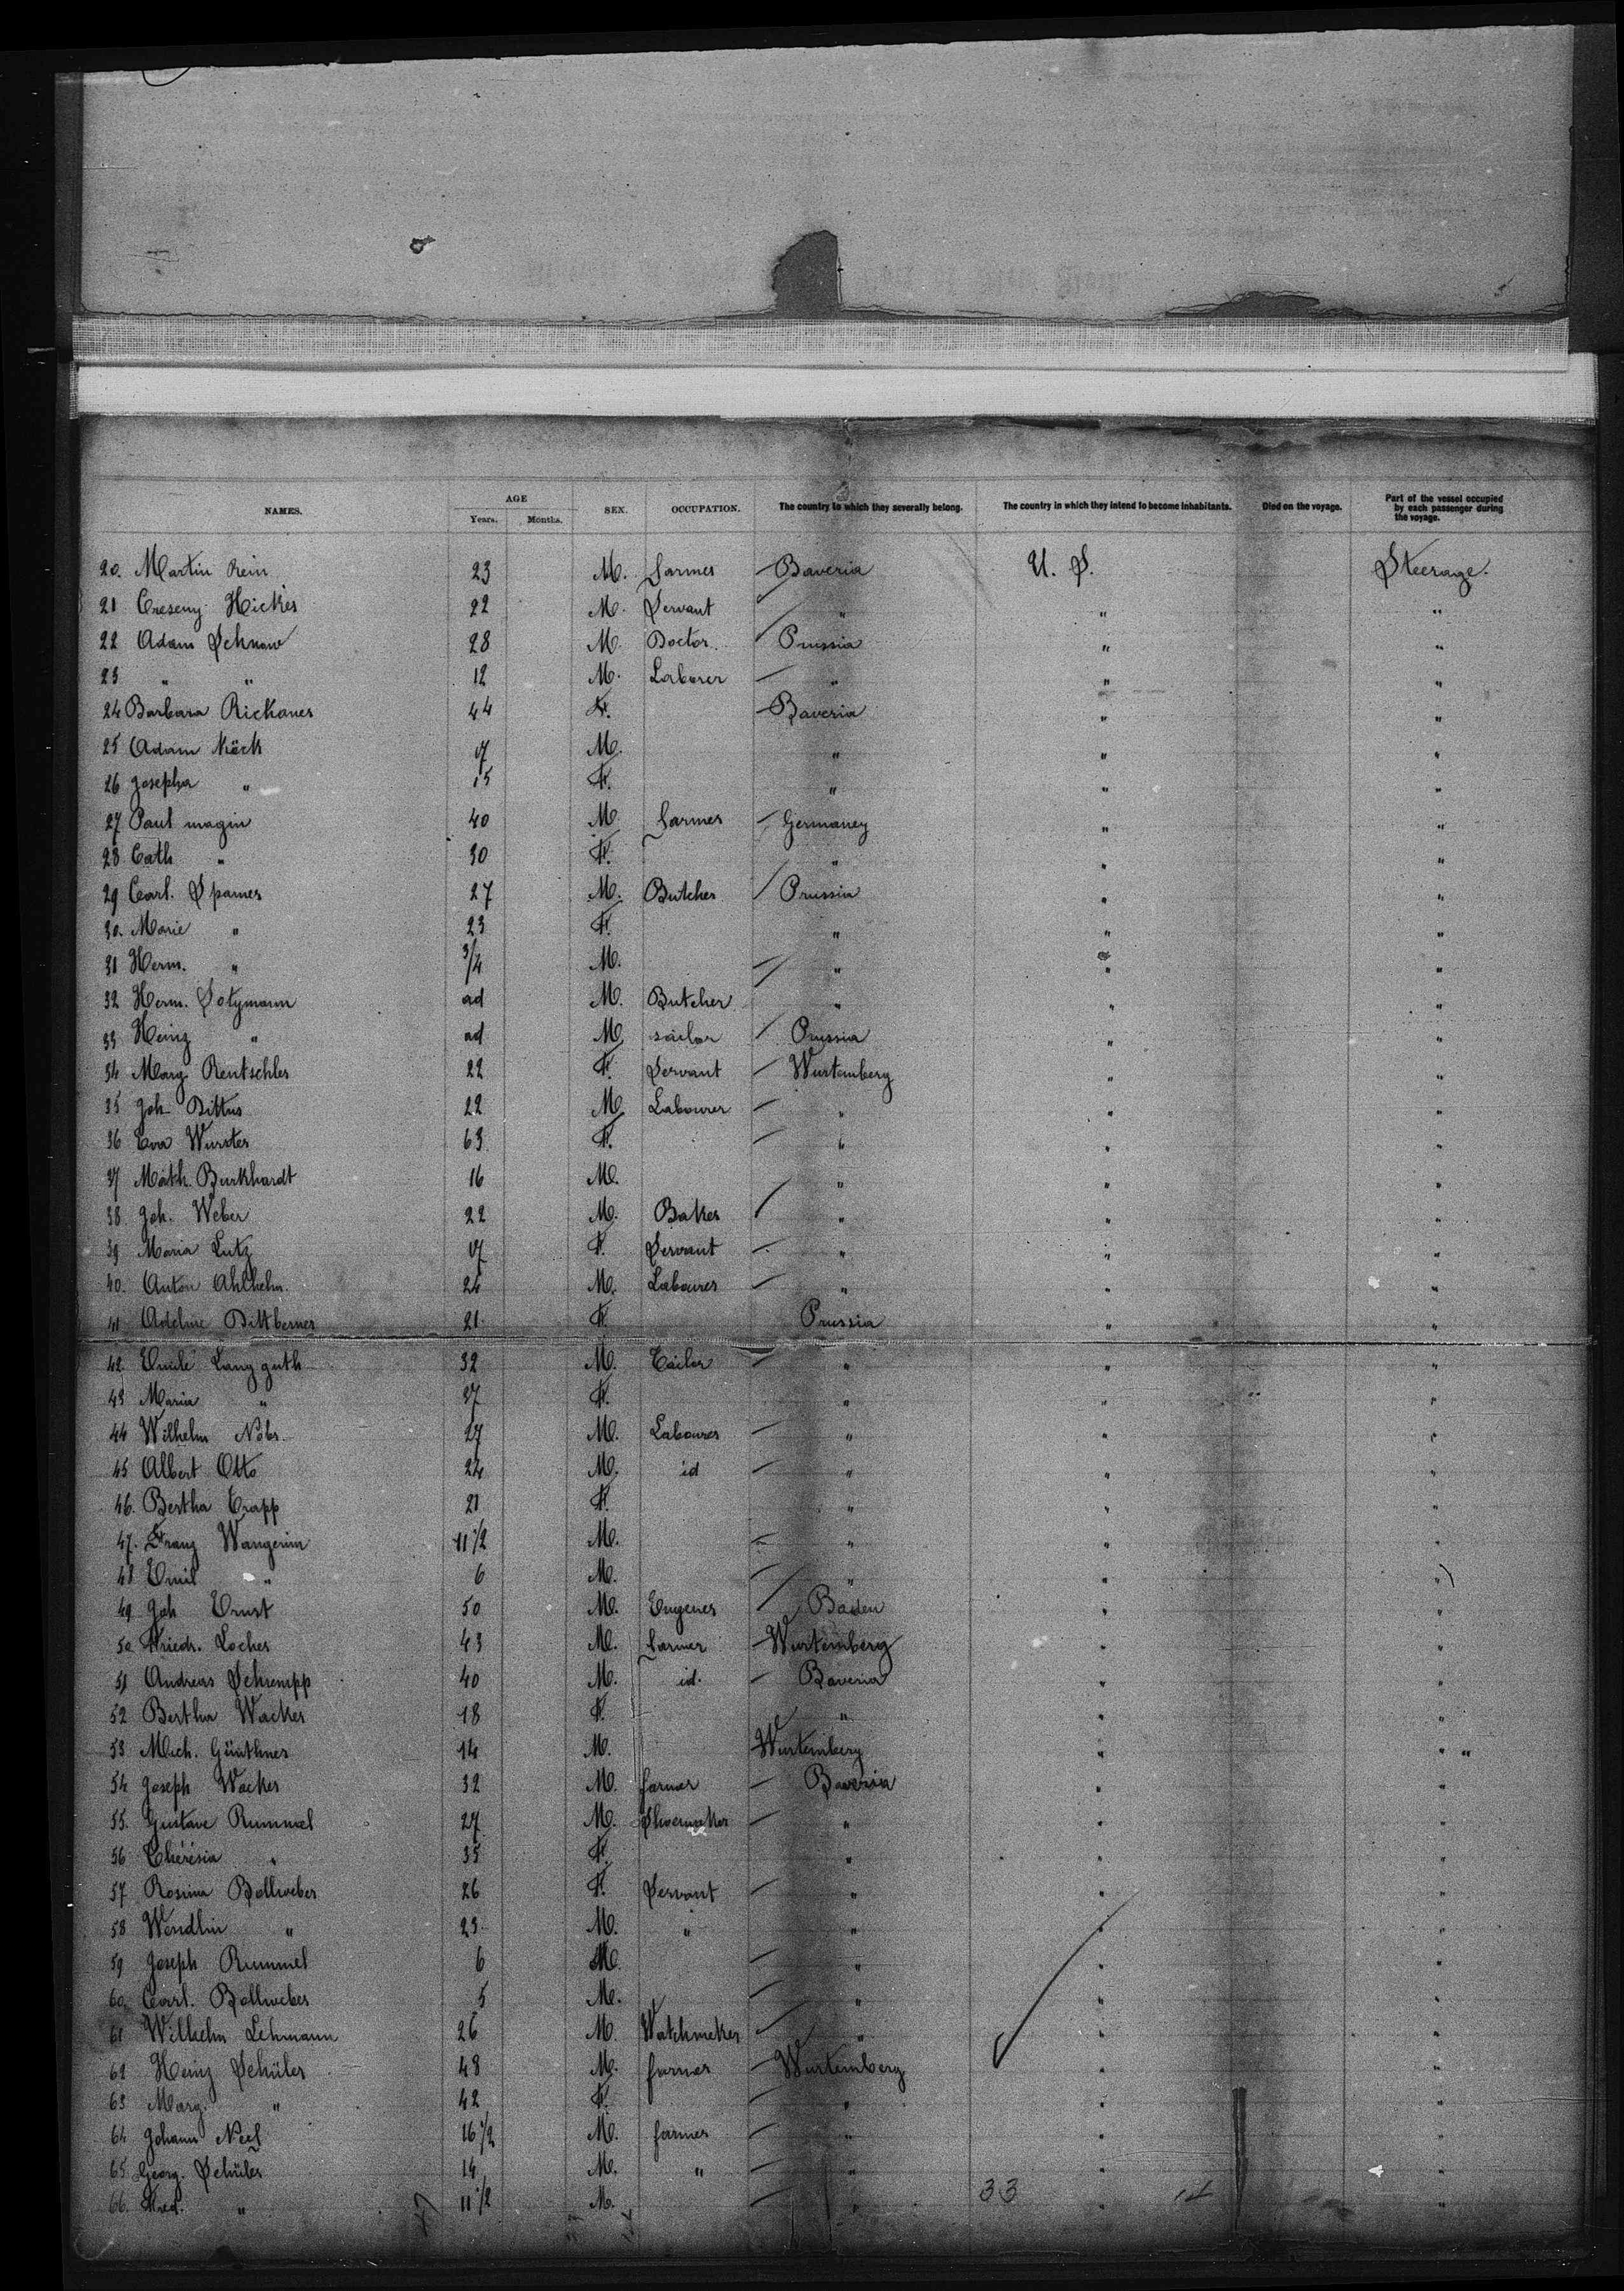 NAMES. AGE Years. Months. SEX. OCCUPATION. The country to which they severally belong. The country in which they intend to become inhabitants. Died on the voyage. Part of the vessel occupied by each passenger during the voyage.
20. Martin Rein 23 M. farmer Baveria U. S. Steerage.
21 Creseny Hickes 22 M. Servant " " "
22 Adam Schnow 28 M. Doctor. Prussia " "
23 " " 12 M. Laborer " " "
24 Barbara Rickaner 44 F. Baveria " "
25 Adam Köck 17 M. " " "
26 Josepha " 15 F. " " "
27 Paul magin 40 M. farmer Germaney " "
28 Cath " 30 F. " " "
29 Carl. Spamer 27 M. Butcher Prussia " "
30. Marie " 23 F. " " "
31 Herm. " 3/4 M. " " "
32 Herm. Sotzmann ad M. Butcher " " "
33 Heinz " ad M. sailor Prussia " "
34 Marg. Rentschler 22 F. Servant Wurtemberg " "
35 Joh. Dittus 22 M. Labourer " " "
36 Eva Wurster 63 F. " " "
37 Math. Burkhardt 16 M. " " "
38. Joh. Weber 22 M. Baker " " "
39 Maria Lutz 17 F. Servant " " "
40. Anton Ahlhelm. 24 M. Labourer " " "
41 Adeline Dittberner 21 F. Prussia " "
42. Emile Langguth 32 M. Tailor " " "
43 Maria " 27 F. " " "
44 Wilhelm 27 M. Labourer " " "
45 Albert Otto 24 M. id " " "
46. Bertha Trapp 21 F. " " "
47. Franz Wangerin 11 1/2 M. " " "
48 Emil " 6 M. " " "
49 Joh Ernst 50 M. Engener Baden " "
50 Friedr. Locher 43 M. farmer Wurtemberg " "
51 Andreas Schrempp 40 M. id. Baveria " "
52 Bertha Wacker 18 F. " " "
53 Mich. Günthner 14 M. Wurtemberg " " "
54 Joseph Wacker 32 M. farmer Baveria " "
55. Gustave Rummel 27 M. Shoemaker " " "
56 Thérésia " 35 F. " " "
57 Rosina Bollweber 26 F. Servant " " "
58 Wendlin " 23 M. " " " "
59 Joseph Rummel 6 M. " " "
60. Carl. Bollweber 5 M. " " "
61 Wilhelm Lehmann 26 M. Watchmaker " " "
62 Heinz Schüler 48 M. farmer Wurtemberg " "
63 Marg. " 42 F. " " "
64 Johann Neef 16 1/2 M. farmer " " "
65 Georg. Schüler 14 M. " " " "
66. Fred. " 11 1/2 M. " " "
33